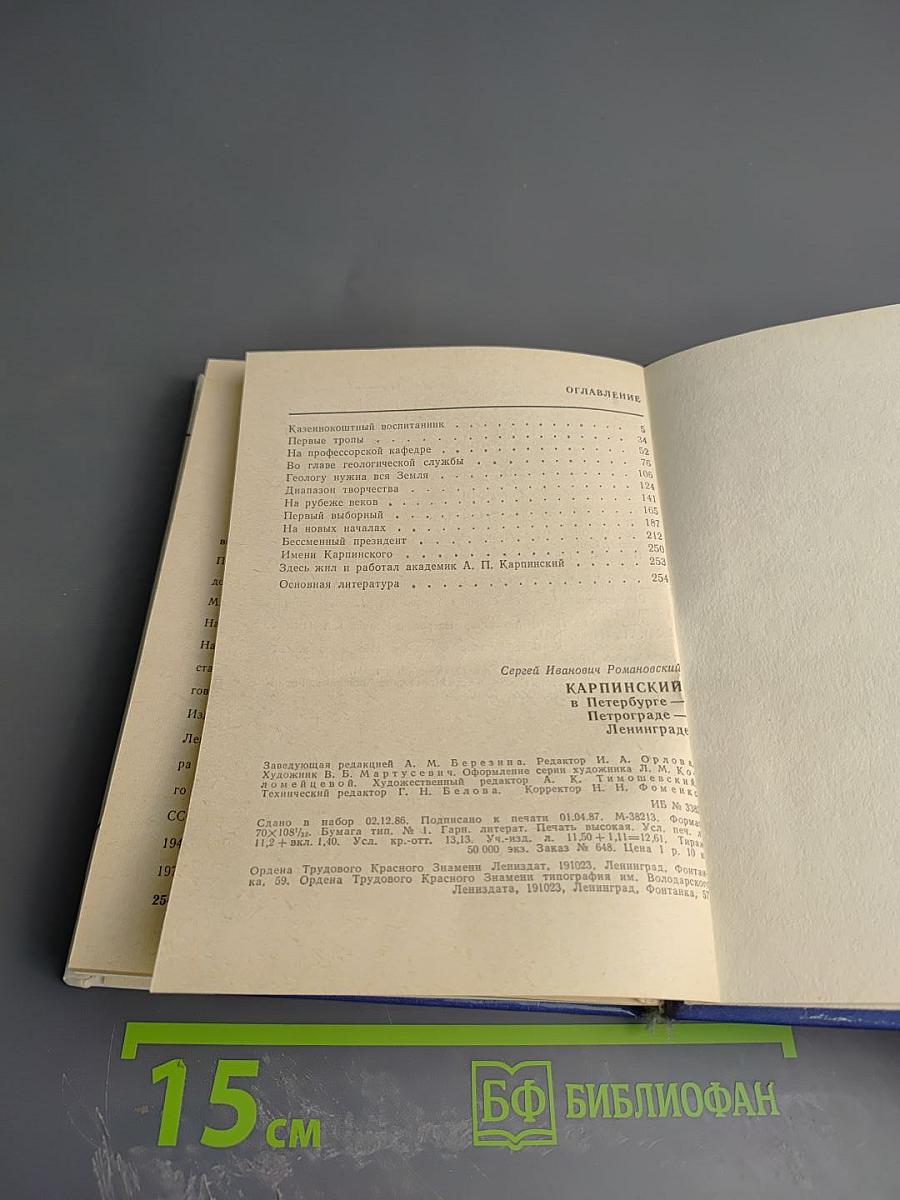 ОГЛАВЛЕНИЕ
Казеннокоштный воспитанник . . . . . . . . . . . 5
Первые тропы . . . . . . . . . . . . . . 34
На профессорской кафедре . . . . . . . . . . . 52
Во главе геологической службы . . . . . . . . . 76
Геологу нужна вся Земля . . . . . . . . . . . 106
Диапазон творчества . . . . . . . . . . . . 124
На рубеже веков . . . . . . . . . . . . . 141
Первый выборный . . . . . . . . . . . . . 165
На новых началах . . . . . . . . . . . . . 187
Бессменный президент . . . . . . . . . . . . 212
Имени Карпинского . . . . . . . . . . . . 250
Здесь жил и работал академик А. П. Карпинский . . . . . 253
Основная литература . . . . . . . . . . . . 254
Сергей Иванович Романовский
КАРПИНСКИЙ
в Петербурге —
Петрограде —
Ленинграде
Заведующая редакцией А. М. Березина. Редактор И. А. Орлова.
Художник В. Б. Мартусевич. Оформление серии художника Л. М. Ко-
ломейцевой. Художественный редактор А. К. Тимошевский
Технический редактор Г. Н. Белова. Корректор Н. Н. Фоменк
ИБ № 338
Сдано в набор 02.12.86. Подписано к печати 01.04.87. М-38213. Форма
70×108¹/₃₂. Бумага тип. № 1. Гарн. литерат. Печать высокая. Усл. печ. л
11,2 + вкл. 1,40. Усл. кр.-отт. 13,13. Уч.-изд. л. 11,50 + 1,11=12,61. Тираж
50 000 экз. Заказ № 648. Цена 1 р. 10 к
Ордена Трудового Красного Знамени Лениздат, 191023, Ленинград, Фонтан-
ка, 59. Ордена Трудового Красного Знамени типография им. Володарского
Лениздата, 191023, Ленинград, Фонтанка, 57
На
На
ста
гов
Из
Ле
ра
го
СС
194
197
25
15 см
БФ БИБЛИОФАН